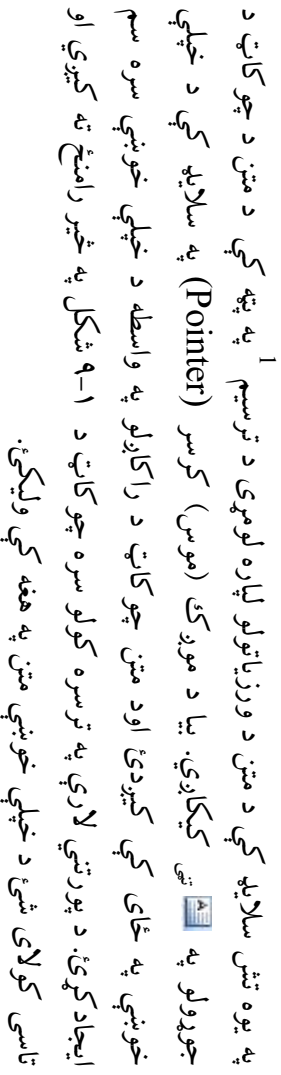 په یوه تش سلایډ کې د متن د ورزیاتولو لپاره لومړی د ترسیم 1 په پټه کې د متن د چوکاټ د
جوړولو په تڼۍ کیکاږي. بیا د موږک (موس) کرسر (Pointer) په سلایډ کې د خپلې
خوښې په ځای کې کیږدئ اود متن چوکاټ د راکاږلو په واسطه د خپلې خوښې سره سم
ایجاد کړئ. د پورتنۍ لارې په ترسره کولو سره چوکاټ د ۱-۹ شکل په څیر رامنځ ته کیږي او
تاسې کولای شئ د خپلې خوښې متن په هغه کې ولیکئ.